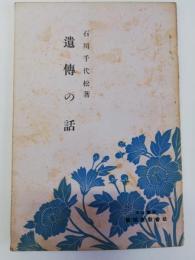 石川千代松著
遺傳の話